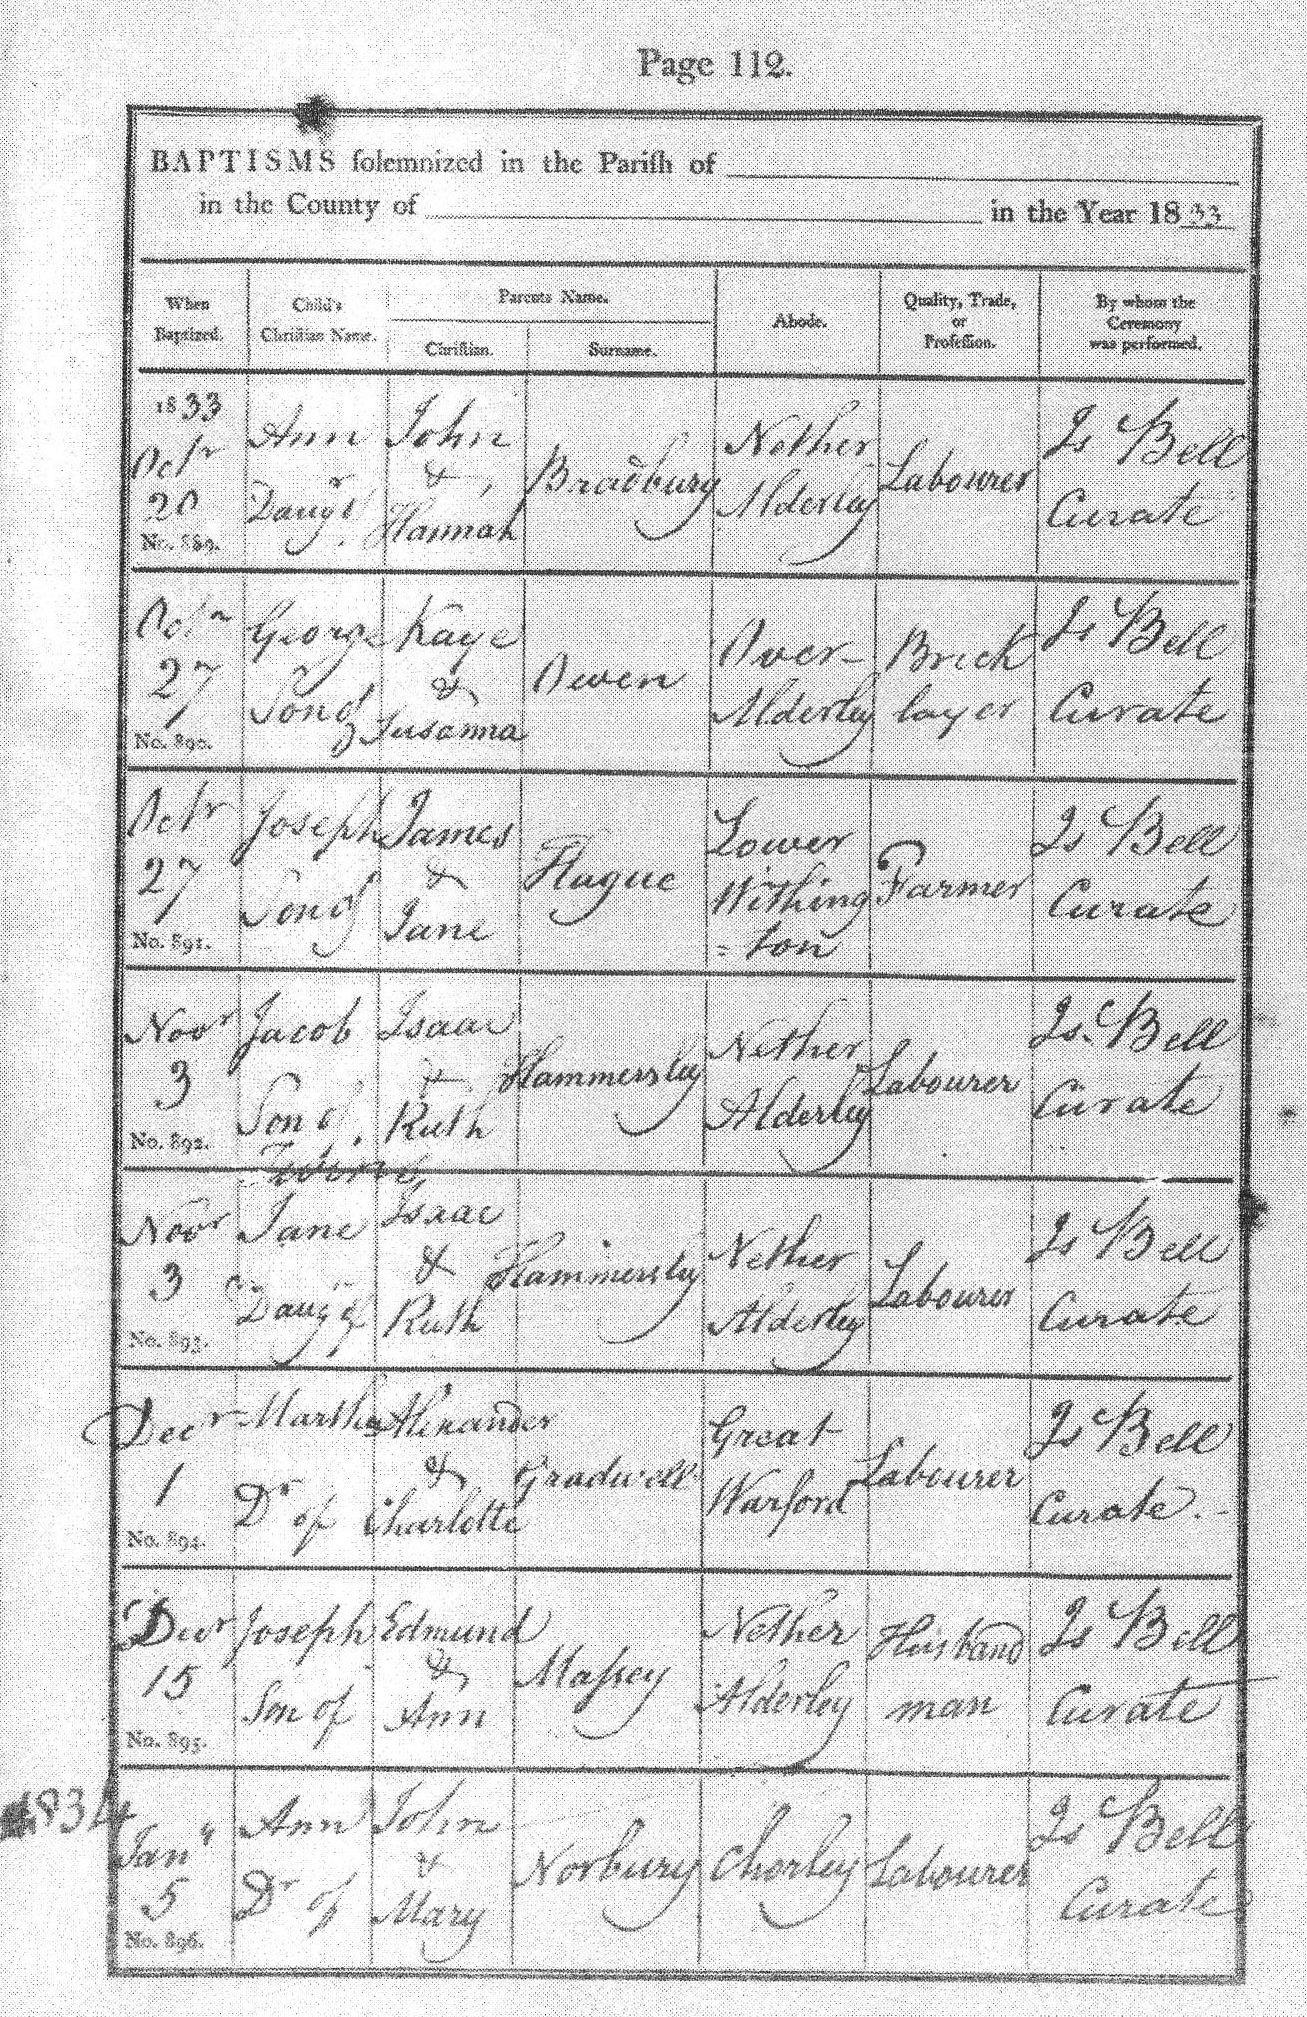 Page 112.
BAPTISMS ſolemnized in the Pariſh of
in the County of in the Year 1833
When Baptized.
Child's Chriſtian Name.
Parents Name.
Chriſtian.
Surname.
Abode.
Quality, Trade, or Profeſſion.
By whom the Ceremony was performed.
1833
Octr
20
No. 889.
Ann
Daugr of
John
&
Hannah
Bradbury
Nether
Alderley
Labourer
Js Bell
Curate
Octr
27
No. 890.
George
Son of
Kaye
&
Susanna
Owen
Over-
Alderley
Brick
layer
Js Bell
Curate
Octr
27
No. 891.
Joseph
Son of
James
&
Jane
Hague
Lower
Withing
=ton
Farmer
Js Bell
Curate
Novr
3
No. 892.
Jacob
Son of
Isaac
&
Ruth
Hammersley
Nether
Alderley
Labourer
Js. Bell
Curate
Twins
Novr
3
No. 893.
Jane
Daug of
Isaac
&
Ruth
Hammersley
Nether
Alderley
Labourer
Js Bell
Curate
Decr
1
No. 894.
Martha
Dr of
Alexander
&
Charlotte
Gradwell
Great
Warford
Labourer
Js Bell
Curate.
Decr
15
No. 895.
Joseph
Son of
Edmund
&
Ann
Maſsey
Nether
Alderley
Husband
man
Js Bell
Curate
1834
Jany
5
No. 896.
Ann
Dr of
John
&
Mary
Norbury
Chorley
Labourer
Js Bell
Curate